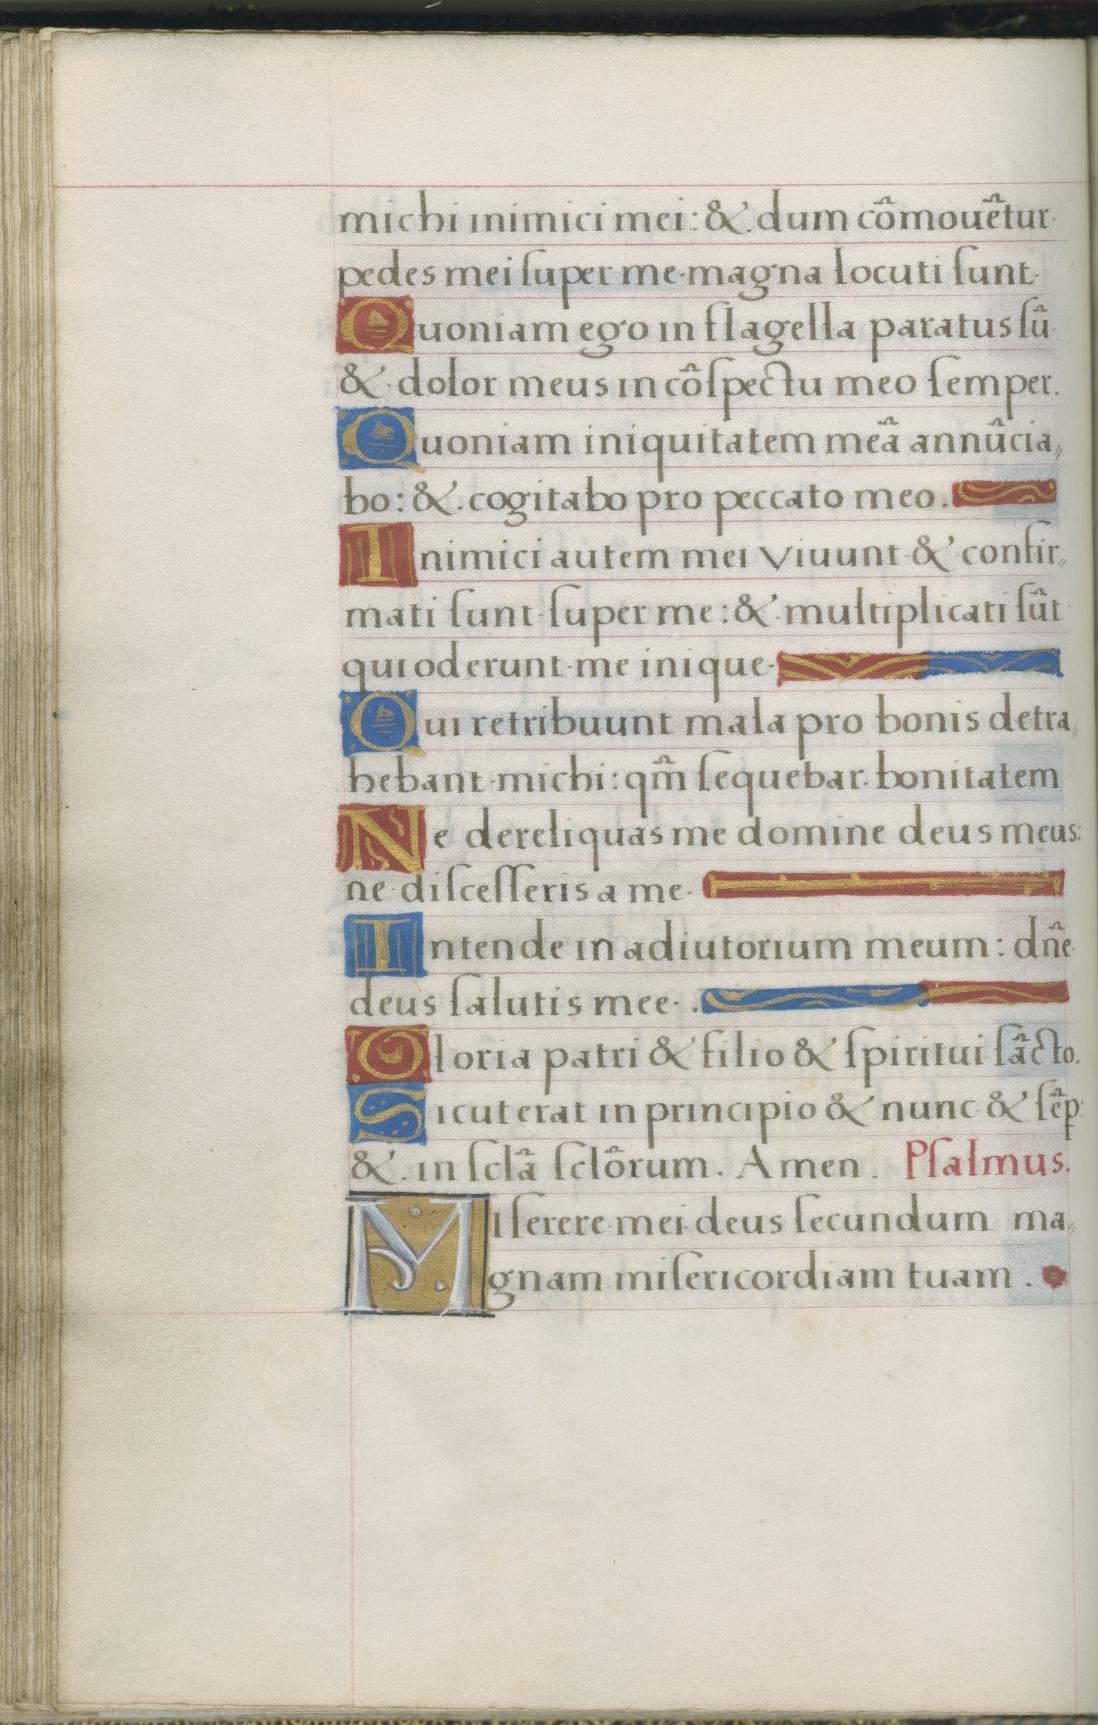 michi inimici mei: & dum cõmouẽtur
pedes mei ſuper me magna locuti ſunt.
Quoniam ego in flagella paratus ſũ
& dolor meus in cõſpectu meo ſemper.
Quoniam iniquitatem meã annũcia„
bo: & cogitabo pro peccato meo.
Inimici autem mei viuunt & confir„
mati ſunt ſuper me: & multiplicati ſũt
qui oderunt me inique.
Qui retribuunt mala pro bonis detra„
hebant michi: qm̃ ſequebar bonitatem
Ne dereliquas me domine deus meus:
ne diſceſſeris a me.
Intende in adiutorium meum: dñe
deus ſalutis mee.
Gloria patri & filio & ſpiritui ſãcto.
Sicut erat in principio & nunc & ſẽp:
& in ſclã ſclõrum. Amen. Pſalmus.
Miſerere mei deus ſecundum ma„
gnam miſericordiam tuam.